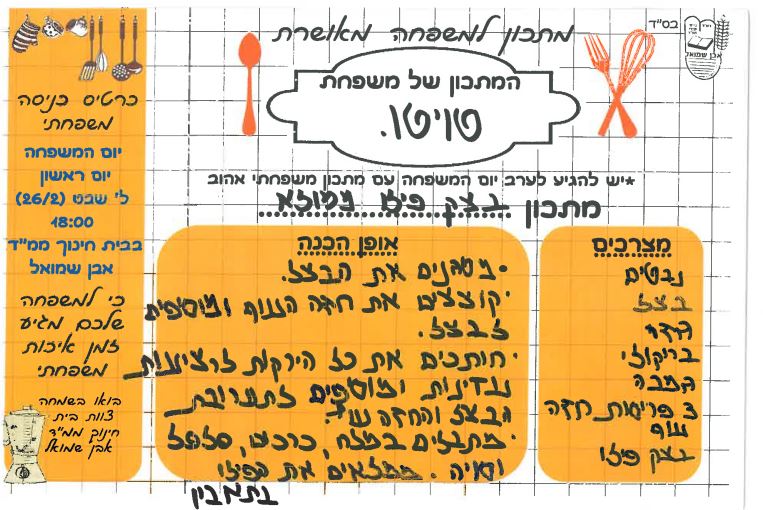 בס"ד
אבן שמואל
מתכון למשפחה מאושרת
המתכון של משפחת
טויטו.
*יש להגיע לערב יום המשפחה עם מתכון משפחתי אהוב
מתכון בצק פיזו ממולא
מצרכים
נבטים
בצל
גזר
ברוקולי
גמבה
2 פריסות חזה
עוף
בצק פיזו
אופן הכנה
• מטגנים את הבצל.
• קוצצים את חזה העוף ומוסיפים
לבצל.
• חותכים את כל הירקות לרצועות
עדינות ומוסיפים לתערובת
הבצל והחזה עוף.
• מתבלים במלח, כרכום, פלפל
וסויה. ממלאים את הפיזו
בתאבון
כרטיס כניסה
משפחתי
יום המשפחה
יום ראשון
ל' שבט (26/2)
18:00
בבית חינוך ממ"ד
אבן שמואל
כי למשפחה
שלכם מגיע
זמן איכות
משפחתי
בואו בשמחה
צוות בית
חינוך ממ"ד
אבן שמואל